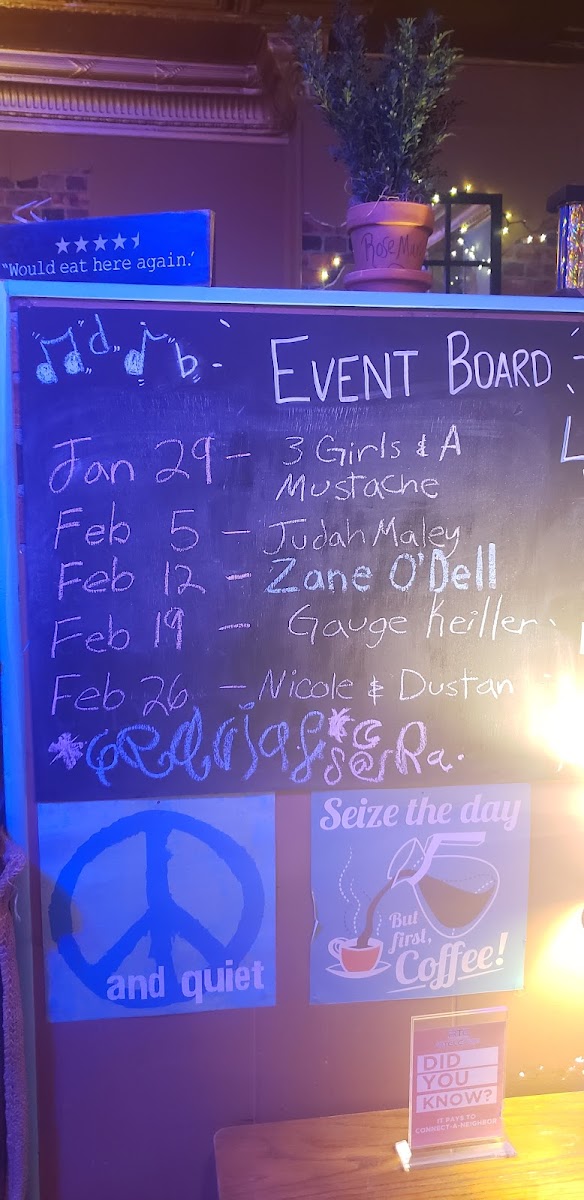 "Would eat here again.'
Rose Mary
EVENT BOARD
Jan 29 - 3 Girls & A
Mustache
Feb 5 - Judah Maley
Feb 12 - Zane O'Dell
Feb 19 - Gauge Keiller
Feb 26 - Nicole & Dustan
and quiet
Seize the day
But
first,
Coffee!
DID
YOU
KNOW?
IT PAYS TO
CONNECT-A-NEIGHBOR